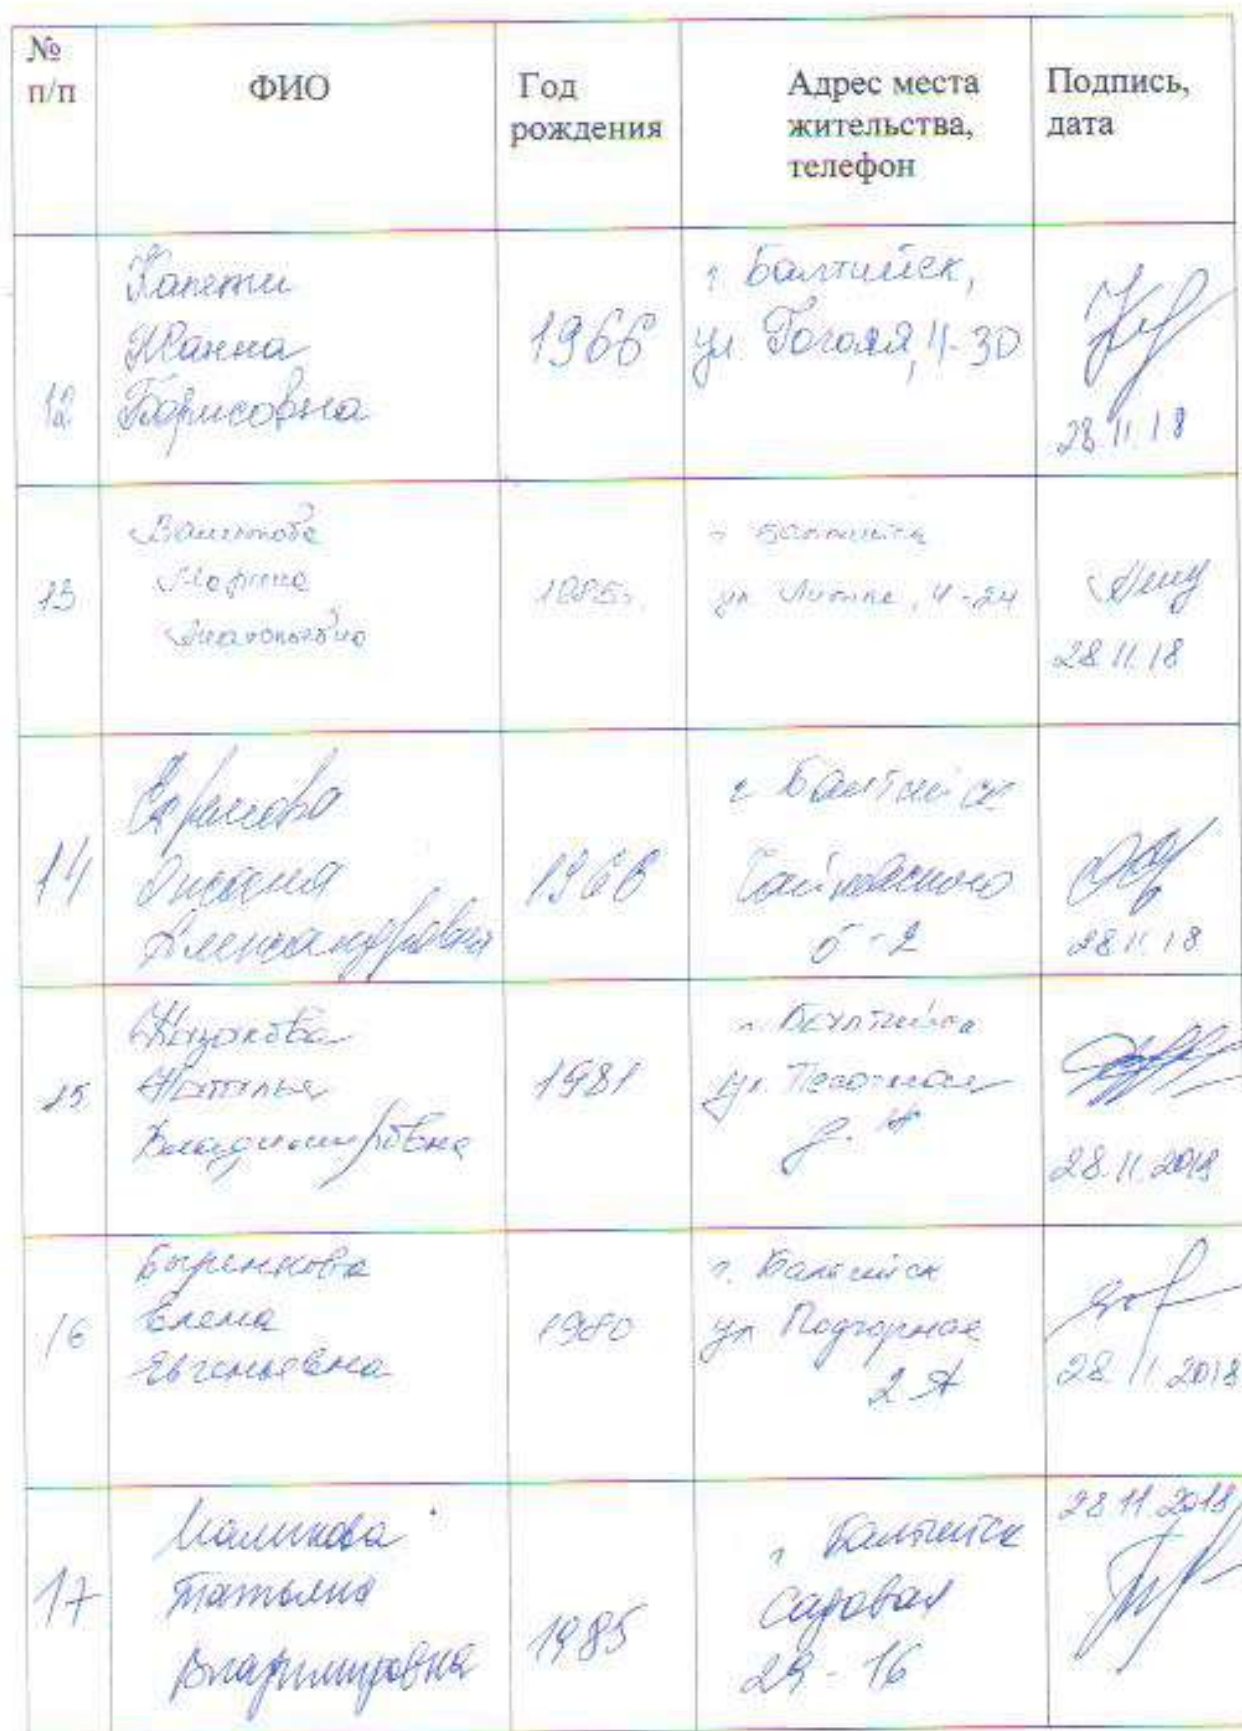 №
п/п
ФИО
Год
рождения
Адрес места
жительства,
телефон
Подпись,
дата
12
Жанна
Борисовна
1966
г. Балтийск,
ул. Гоголя, 4-30
28.11.18
13
Марина
Анатольевна
1985г.
г. Балтийск
4-24
28.11.18
14
Александровна
1966
г Балтийск
Чайковского
5-2
28.11.18
15
Казакова
Наталья
Владимировна
1981
г. Балтийск
ул. Песочная
д.
28.11.2018
16
Елена
Евгеньевна
1980
г. Балтийск
ул Подгорная
2 А
28.11.2018
17
Маликова
Татьяна
Владимировна
1985
г Балтийск
Садовая
29-16
28.11.2018